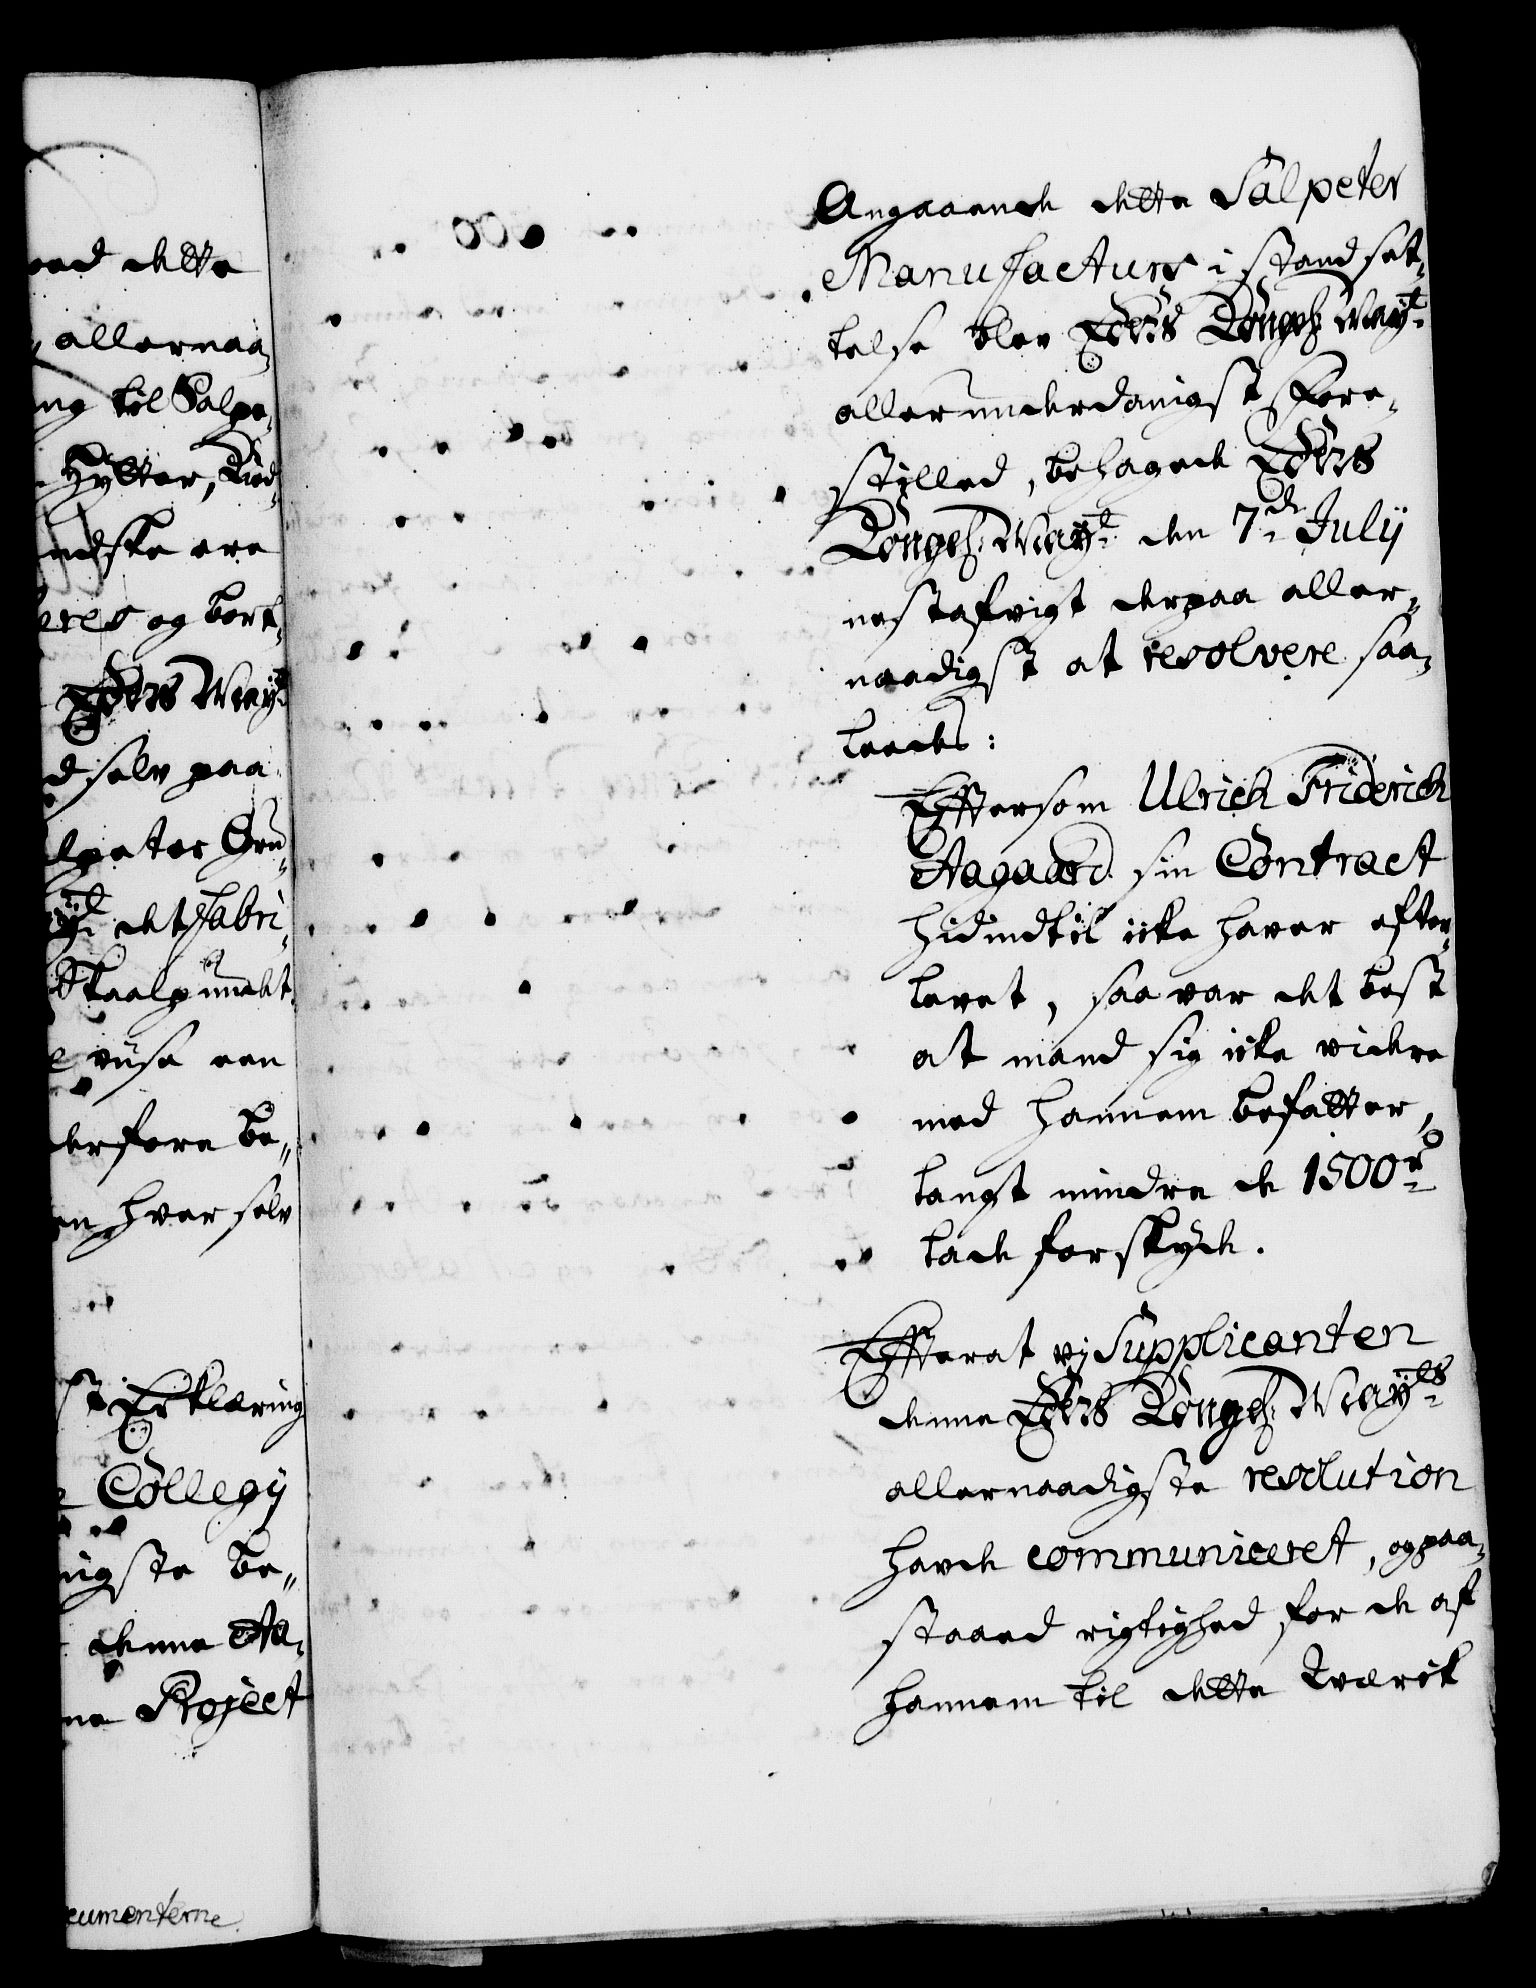 ved dette
allernaa-
ng til Salpe-
Hytter,
ndske ere
eres og bort-
Eders May.t
d selv paa-
lpeter Gru-
det fabri-
e viise een
derfore be-
en hver selv
Erklæring
Collegij
nigste be-
denne Aa-
ne Project
cumenterne
Angaaende dette Salpeter
Manufacturs i stand set-
telse blev Eders Kongel: May.t
allerunderdanigst fore-
stilled, behagede Eders
Kongel: May.t den 7.de July
nestafvigt derpaa aller-
naadigst at resolvere saa-
leedes:
Eftersom Ulrich Friderich
Aagaard sin Contract
hidindtil icke haver efter-
levet, saa var det best
at mand sig icke videre
med hannem befatter,
langt mindre de 1500 r.d
lade forskyde.
Efterat vj Supplicanten
denne Eders Kongel: May.ts
allernaadigste resolution
havde communiceret, og paa-
staaed rigtighed for de af
hannem til dette Værck